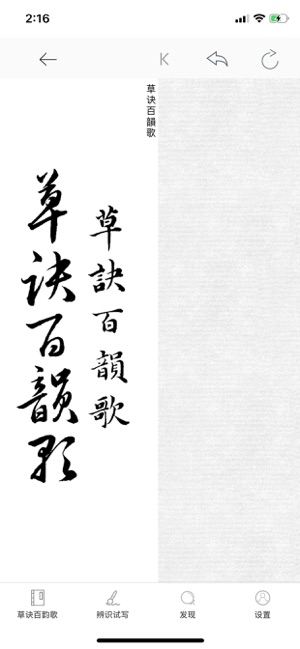 2:16
K
草诀百韻歌
草訣百韻歌
草诀百韻歌
草诀百韵歌
辨识试写
发现
设置